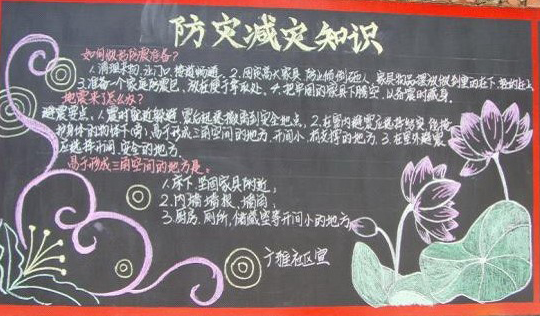 防灾减灾知识
如何做好防震准备?
1.清理杂物,让门口、楼道畅通。2.固定高大家具,防止倾倒砸人,家具物品摆放做到重的在下,轻的在上
3.准备一个家庭防震包,放在便于拿取处。4.把牢固的家具下腾空,以备震时藏身。
地震来了怎么办?
避震要点:1.震时就近躲避,震后迅速撤离到安全地点。2.在室内避震应选择结实、能掩
护身体的物体下(旁)、易于形成三角空间的地方,开间小、有支撑的地方。3.在室外避震
应选择开阔、安全的地方。
易于形成三角空间的地方是:
1.床下、坚固家具附近;
2.内墙墙根、墙角;
3.厨房、厕所、储藏室等开间小的地方。
广雅社区宣